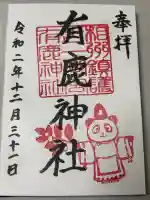 奉拝
相州鎮護
有鹿神社
有鹿神社
令和二年十二月三十一日